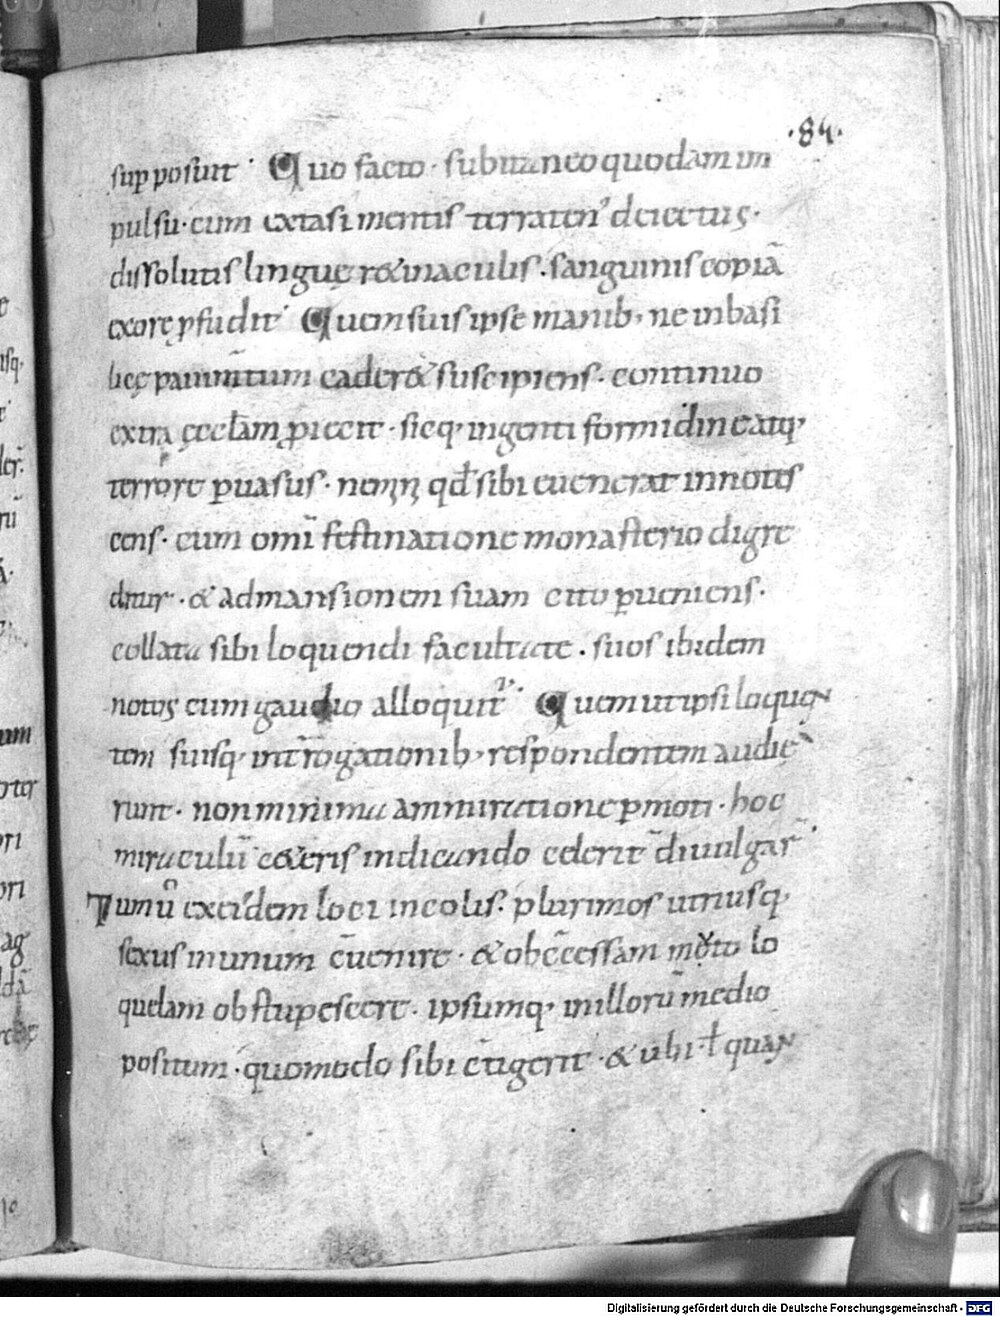 ·84·
supposuit· Quo facto· subitaneo quodam im
pulsu· cum extasi mentis terraten' deiectus·
dissolutis linguę r&inaculis· sanguinis copiā
ex ore ꝓfudit· Quem suis ipse manib; ne in basi
licę pauim̄tum cader& suscipiens· continuo
extra ęccłam ꝓiecit· sicq; ingenti formidine atq;
terrore ꝑuasus· nemini qđ sibi euenerat innotes
cens· cum omī festinatione monasterio digre
ditur· & ad mansionem suam cito ꝑueniens·
collata sibi loquendi facultate· suos ibidem
notos cum gaudio alloquit᷑· Quem ut ipsi loquen
tem suisq; int̄rogationib; respondentem audie
runt· non minima ammiratione ꝑmoti· hoc
miraculū c&eris indicando celerit̄ diuulgar̄·
Tum ū ex eidem loci incolis· plurimos utriusq;
sexus in unum c̄uenire· & ob c̄cessam muto lo
quelam obstupescere· ipsumq; in illorū medio
positum· quomodo sibi c̄tigerit· & ubi ł quan